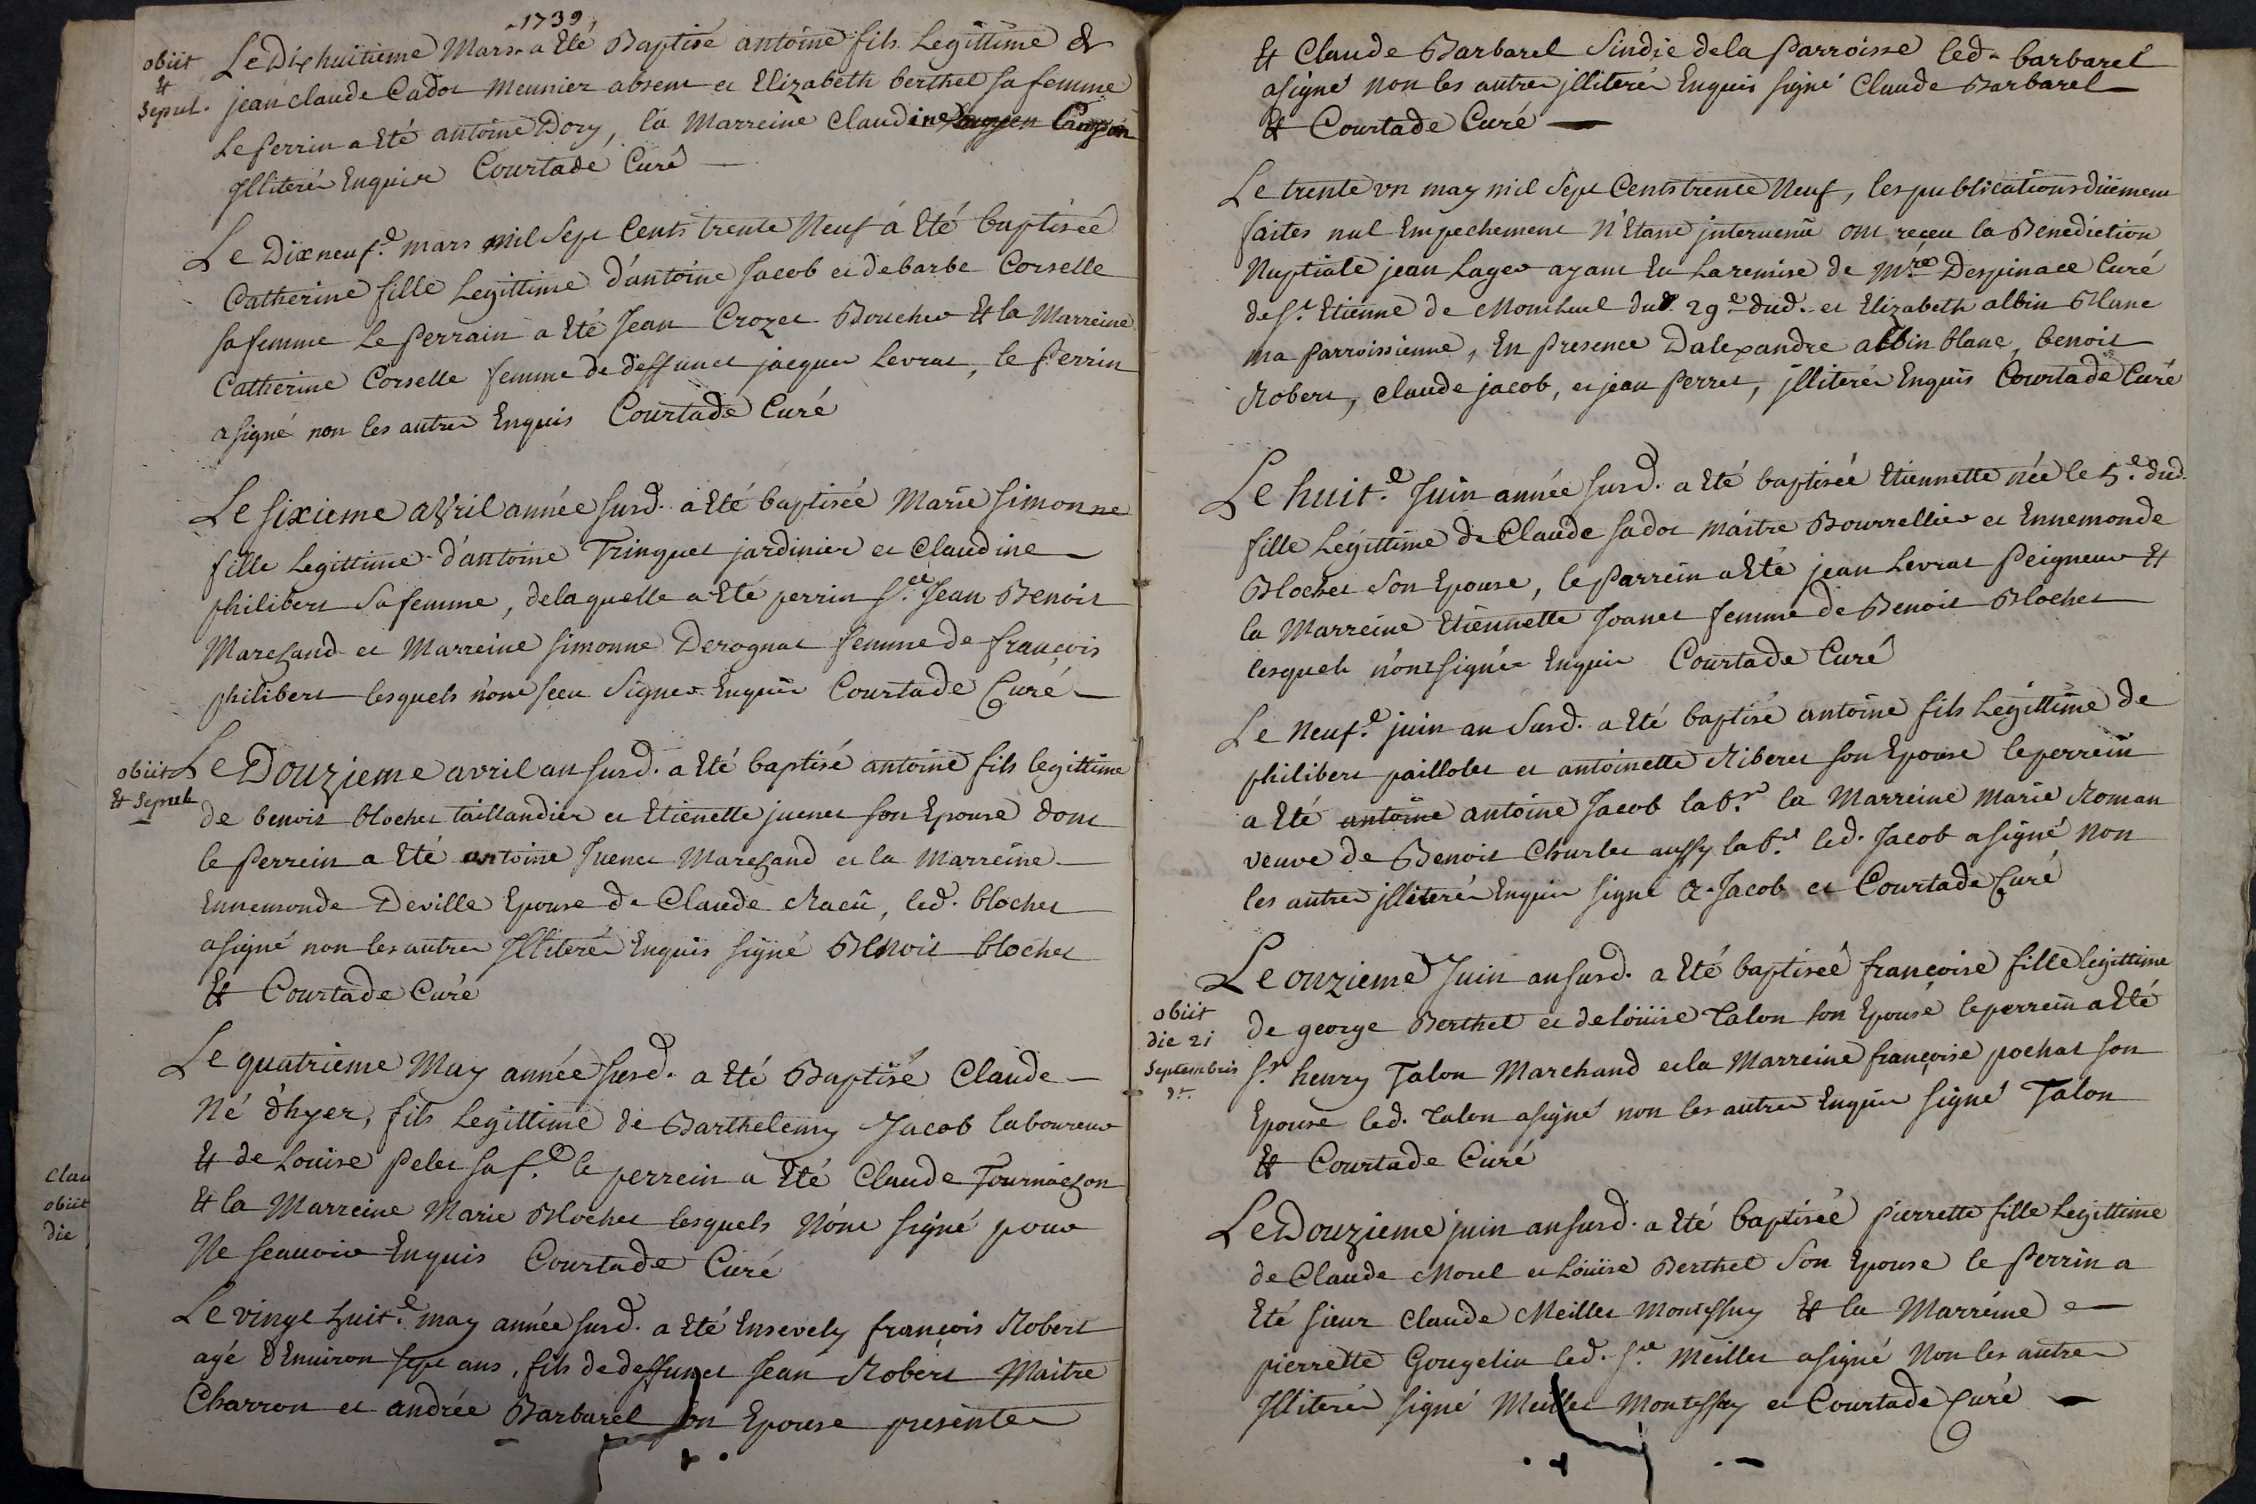 1739
obiit
et
sepul.
Le Dixhuitieme Mars a Eté Baptisé antoine fils Legittime de
jean claude Cadot Meunier absent et Elizabeth berthet sa femme
Le Perrin a Eté antoine Dory, la Marreine Claudine
Jlliterés Enquis Courtade Curé
Le Dixneuf.e mars mil Sept Cents trente Neuf á Eté baptisée
Catherine fille Legittime d'antoine Jacob et de barbe Corselle
sa femme Le Perrain a Eté Jean Crozet Boucher Et la Marreine
Catherine Corselle femme de deffunct jacques Levrat, le Perrin
a signé non les autres Enquis Courtade Curé
Le sixieme avril année susd. a Eté baptisée Marie simonne
fille Legittime d'antoine Trinquet jardinier et Claudine
philibert Sa femme, de laquelle a Eté perrin S.r Jean Benoit
Marchand et Marreine simonne Derognat femme de françois
philibert lesquels n'ont sceu Signer Enquis Courtade Curé
obiit
Et Sepult
Le Douzieme avril an susd. a Eté baptisé antoine fils legittime
de benoit blochet taillandier et Etienette juenet son Epouse dont
le Perrein a Eté antoine Juenet Marchand et la Marreine
Ennemonde Deville Epouse de Claude Racû, led. blochet
a signé non les autres Jlliterés Enquis signé Benoit blochet
Et Courtade Curé
Le quatrieme May année susd. a Eté Baptisé Claude
Né d'hyer, fils Legittime de Barthelemy Jacob laboureur
Et de Louise Pelet sa f.e le perrein a Eté Claude Tournachon
Et la Marreine Marie Blochet lesquels N'ont signé pour
Ne scauoir Enquis Courtade Curé
Clau
obiit
die
Le vingt huit.e may année susd. a Eté Ensevely françois Robert
agé d'Enuiron sept ans, fils de deffunct Jean Robert Maitre
Charron et andrée Barbarel son Epouse presentes
Et Claude Barbarel Sindic de la Parroisse led. barbarel
a signé non les autres jlliterés Enquis signé Claude Barbarel
Et Courtade Curé
Le trente vn may mil Sept Cents trente Neuf, les publications düement
faites nul Empechement N'Etant jntervenû ont receu la Benediction
Nuptiale jean Lager ayant Eu La remise de M.re Despinace Curé
de S.t Etienne de Montluel du 29.e dud. et Elizabeth albin Blanc
ma Parroissienne, En Presence D'alexandre albin blanc, benoit
Robert, Claude jacob, et jean Perret, jlliterés Enquis Courtade Curé
Le huit.e Juin année susd. a Eté baptisée Etiennette née le 5.e dud.
fille Legittime de Claude sadot maître Bourrellier et Ennemonde
Blochet Son Epouse, le Parrein a Eté jean Levrat Peigneur Et
la Marreine Etiennette Joanet femme de Benoit Blochet
lesquels n'ont signés Enquis Courtade Curé
Le Neuf.e juin an Susd. a Eté baptisé antoine fils Legittime de
philibert paillolet et antoinette Riberet son Epouse le perrein
a Eté antoine antoine Jacob lab.r la Marreine Marie Roman
veuve de Benoit Charlet aussy lab.r led. Jacob a signé Non
les autres jlliterés Enquis signé A. Jacob et Courtade Curé
obiit
die 21
Septembris
d.t
Le onzieme Juin an susd. a Eté baptiseé françoise fille legittime
de george Berthet et de löuise Talon son Epouse le perrein a Eté
S.r henry Talon Marchand et la Marreine françoise pochat son
Epouse led. Talon a signé non les autres Enquis signé Talon
Et Courtade Curé
Le Douzieme juin an susd. a Eté baptiseé pierrette fille Legittime
de Claude Morel et Löuise Berthet Son Epouse le Perrin a
Eté sieur Claude Meillet Montessuy Et la Marreine
pierrette Gougelin led. S.r Meillet a signé Non les autres
Jlliterés signé Meillet Montessuy et Courtade Curé